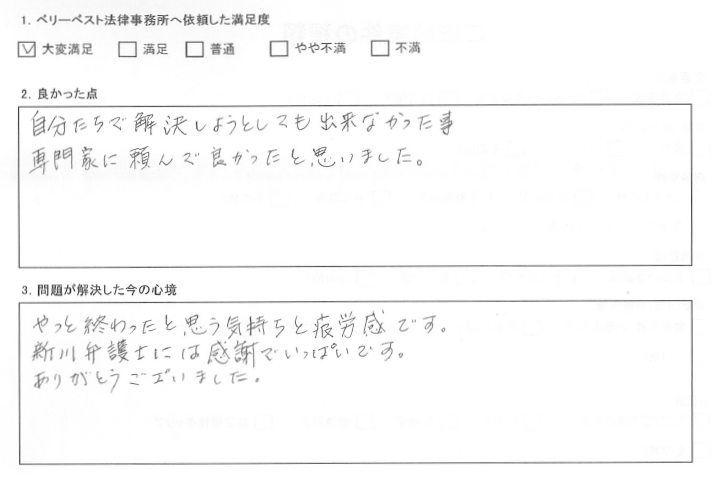 1. ベリーベスト法律事務所へ依頼した満足度
☑ 大変満足 □ 満足 □ 普通 □ やや不満 □ 不満
2. 良かった点
自分たちで解決しようとしても出来なかった事
専門家に頼んで良かったと思いました。
3. 問題が解決した今の心境
やっと終わったと思う気持ちと疲労感です。
新川弁護士には感謝でいっぱいです。
ありがとうございました。